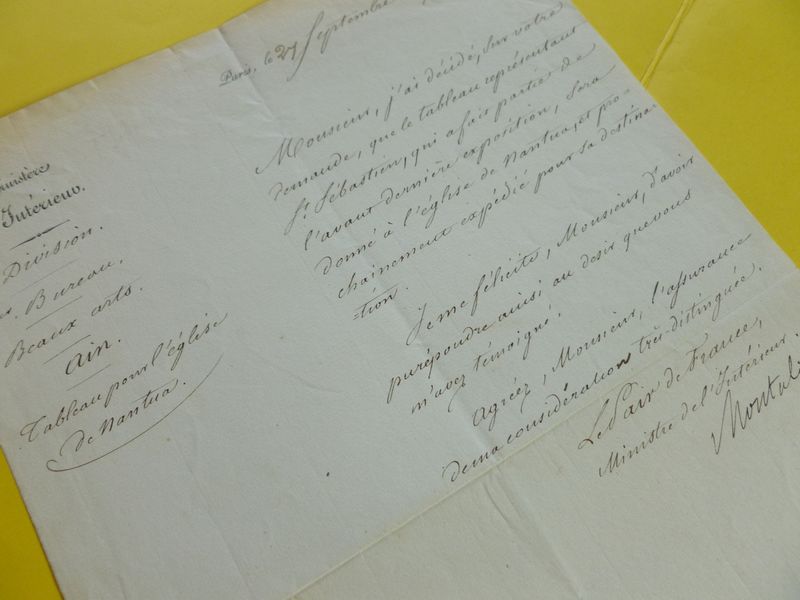 Ministère
Intérieur.
Division.
Bureau.
Beaux arts.
Ain.
Tableau pour l'église
de Nantua.
Paris, le 27 Septembre
Monsieur, j'ai décidé, sur votre
demande, que le tableau représentant
St. Sébastien, qui a fait partie de
l'avant dernière exposition, sera
donné à l'église de Nantua, et pro-
chainement expédié pour sa destina-
-tion.
Je me félicite, Monsieur, d'avoir
pu répondre ainsi au desir que vous
m'avez témoigné.
Agréez, Monsieur, l'assurance
de ma considération très-distinguée.
Le Pair de France,
Ministre de l'Intérieur.
Montali